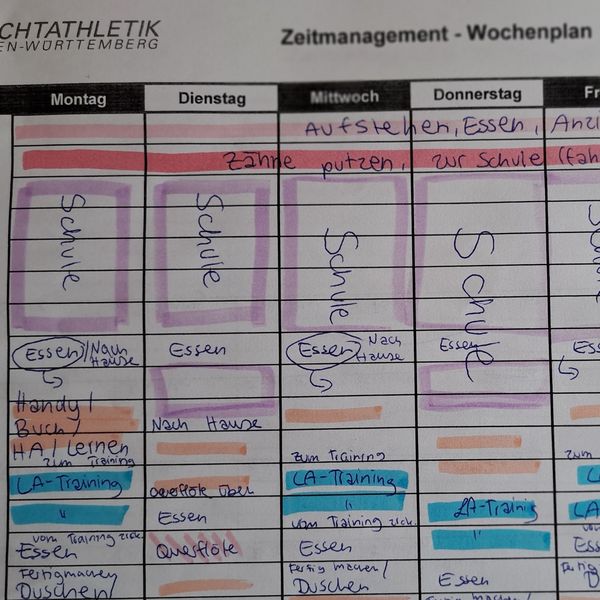 CHTATHLETIK
EN-WÜRTTEMBERG
Zeitmanagement - Wochenplan
Montag Dienstag Mittwoch Donnerstag Fr
Aufstehen, Essen, Anzi
Zähne putzen, zur Schule (fah
Schule Schule Schule Schule
Essen / Nach Hause Essen Essen Nach Hause Essen Ess
Handy /
Buch / Nach Hause
HA / Lernen
zum Training zum Training zum
LA-Training Querflöte üben LA-Training L
" Essen " LA-Trainig LA
vom Training zck. vom Training zck. "
Essen Querflöte Essen Ess
Fertigmachen / Fertig machen / Essen Fertig
Duschen / Duschen D